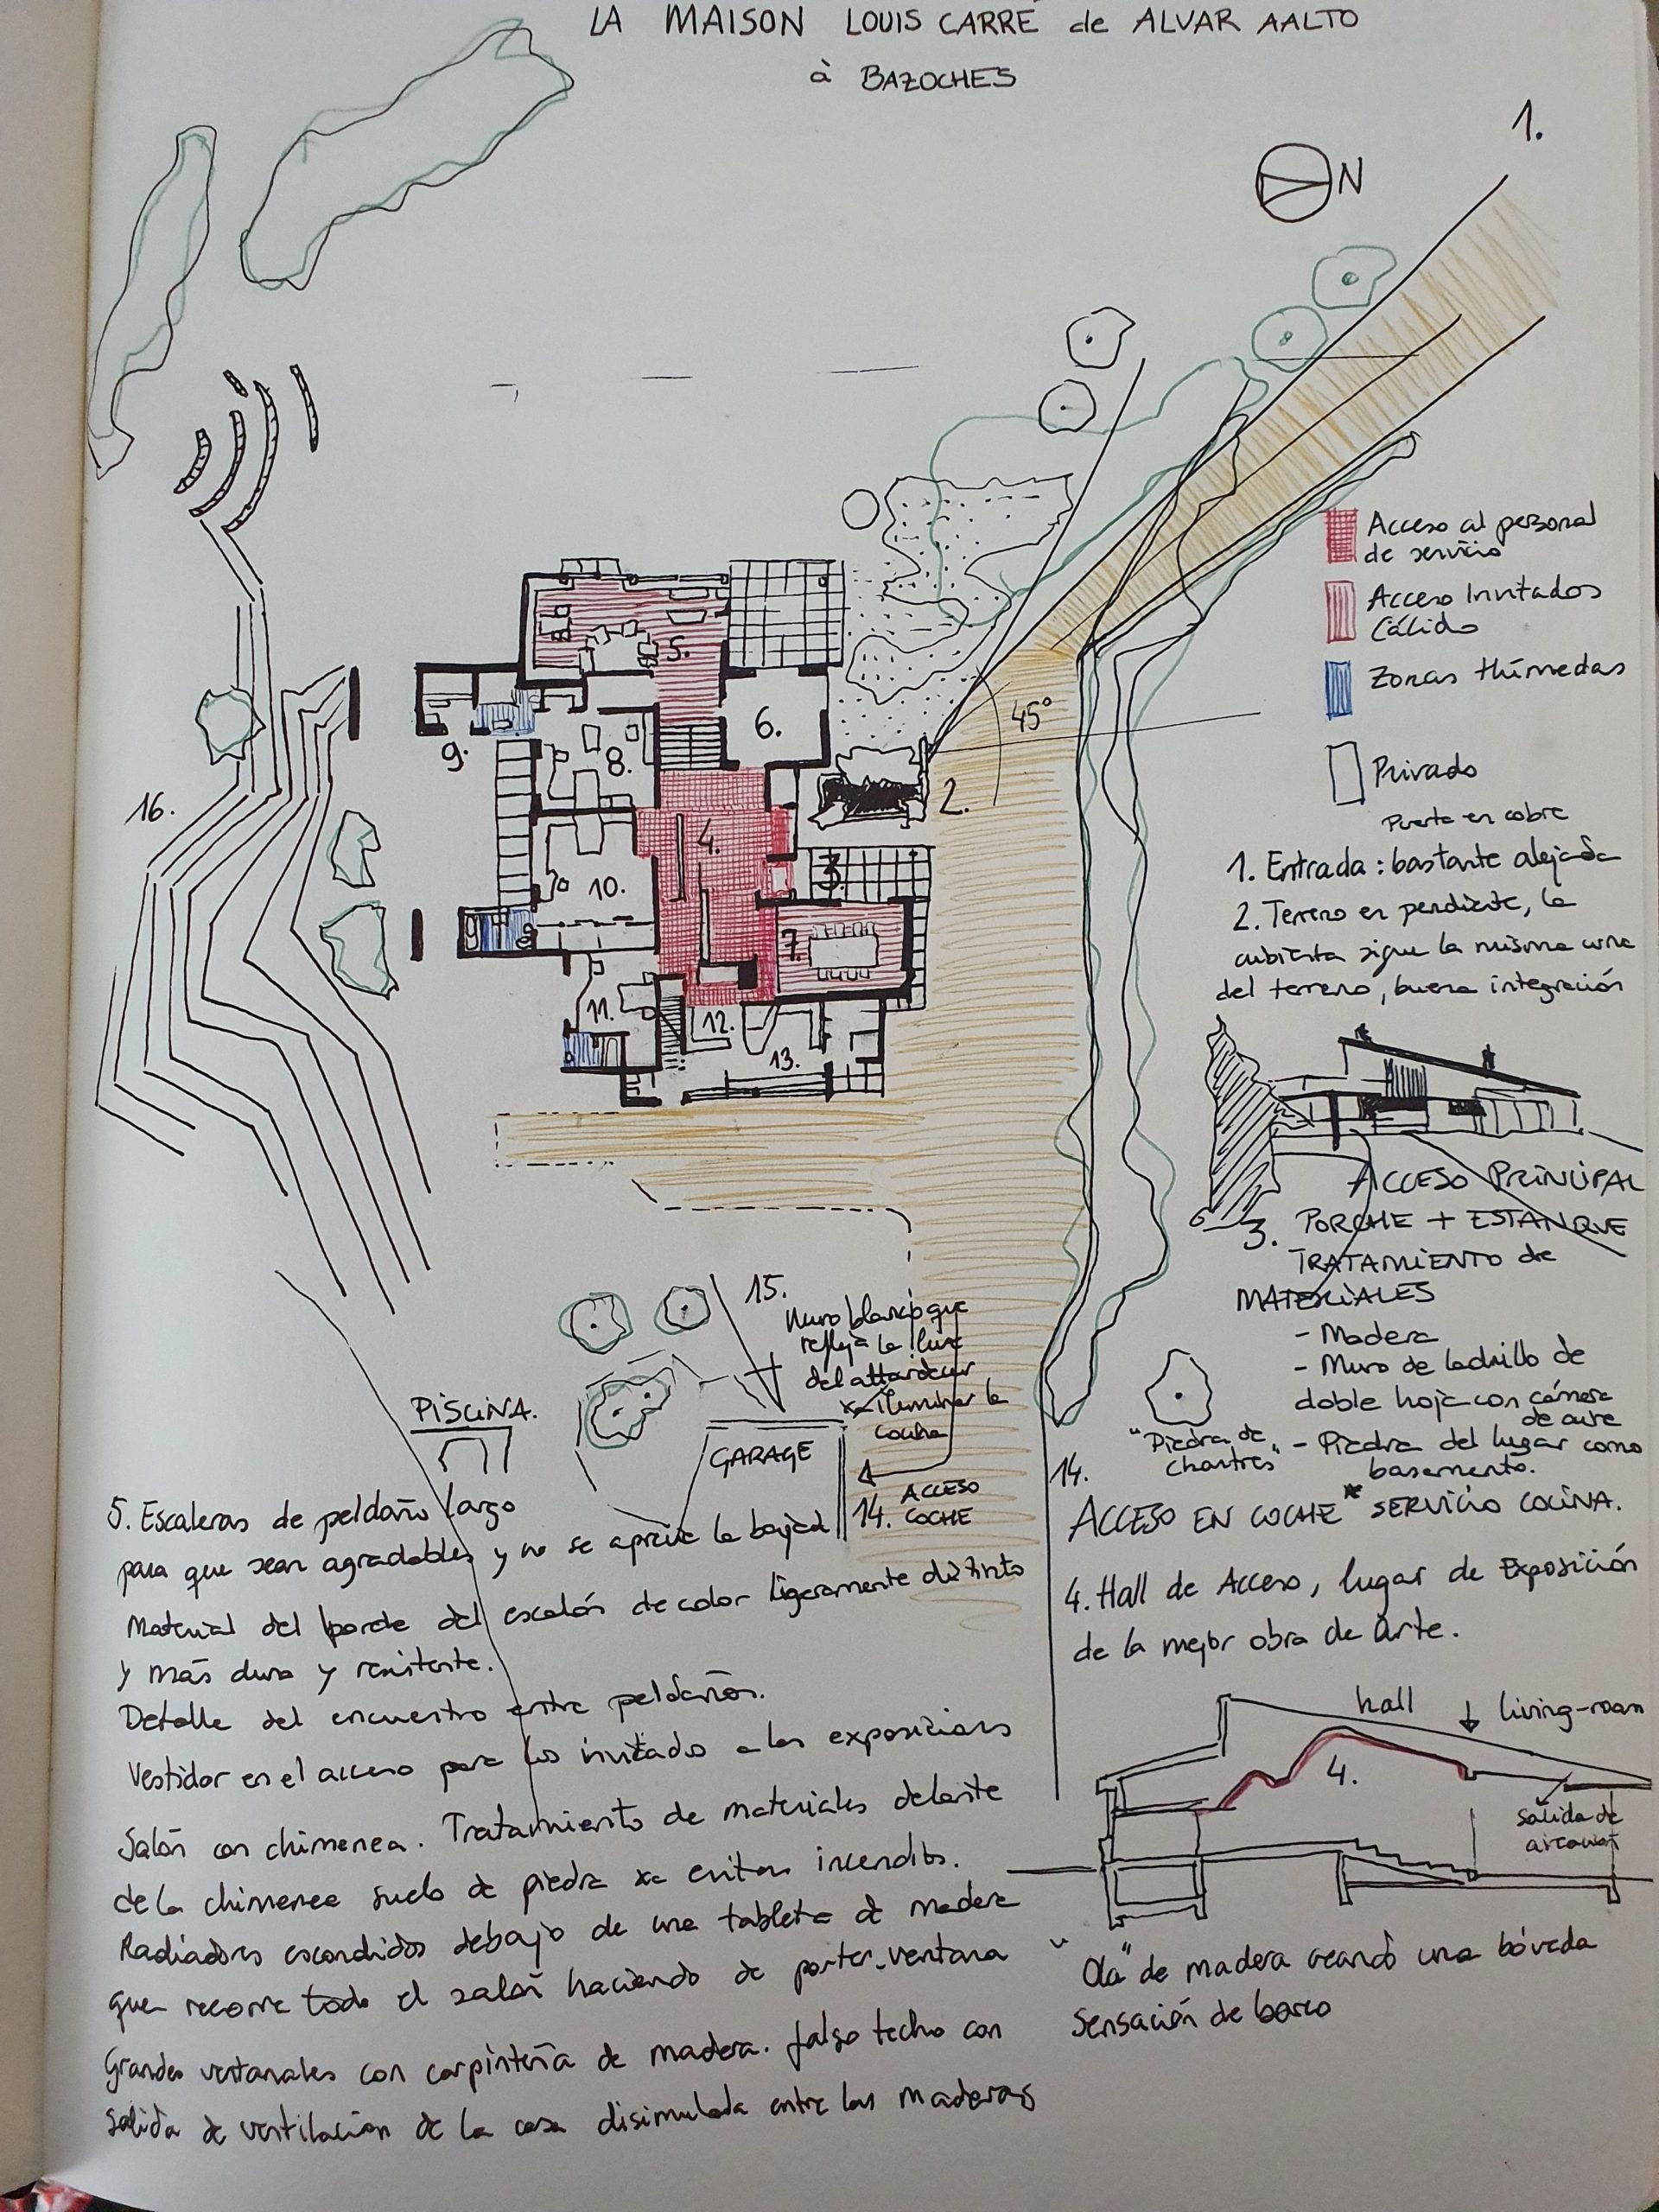 LA MAISON LOUIS CARRÉ de ALVAR AALTO
à BAZOCHES
1.
N
45°
2.
3.
4.
5.
6.
7.
8.
9.
10.
11.
12.
13.
16.
Acceso al personal
de servicio
Acceso Invitados
Cálido
Zonas Húmedas
Privado
Puerta en cobre
1. Entrada : bastante alejada
2. Terreno en pendiente, la
cubierta sigue la misma
del terreno, buena integración
ACCESO PRINCIPAL
3. PORCHE + ESTANQUE
TRATAMIENTO de
MATERIALES
- Madera
- Muro de ladrillo de
doble hoja con cámara
de aire
- Piedra del lugar como
basamento.
"Piedra de
Chartres"
15.
Muro blanco que
refleja la luz
del attardecer
xa iluminar la
cocina
PISCINA.
GARAGE
14. ACCESO
COCHE
14.
ACCESO EN COCHE * SERVICIO COCINA.
4. Hall de Acceso, lugar de Exposición
de la mejor obra de Arte.
hall
living-room
4.
Salida de
"Ola" de madera creando una bóveda
Sensación de barco
5. Escaleras de peldaño largo
para que sean agradables y no se aprecie la bajada
Material del borde del escalón de color ligeramente distinto
y más duro y resistente.
Detalle del encuentro entre peldaños.
Vestidor en el acceso para los invitados a las exposiciones
Salón con chimenea. Tratamiento de materiales delante
de la chimenea suelo de piedra xa evitar incendios.
Radiadores escondidos debajo de una tableta de madera
que recorre todo el salón haciendo de porter-ventana
Grandes ventanales con carpintería de madera. falso techo con
salida de ventilación de la casa disimulada entre las maderas